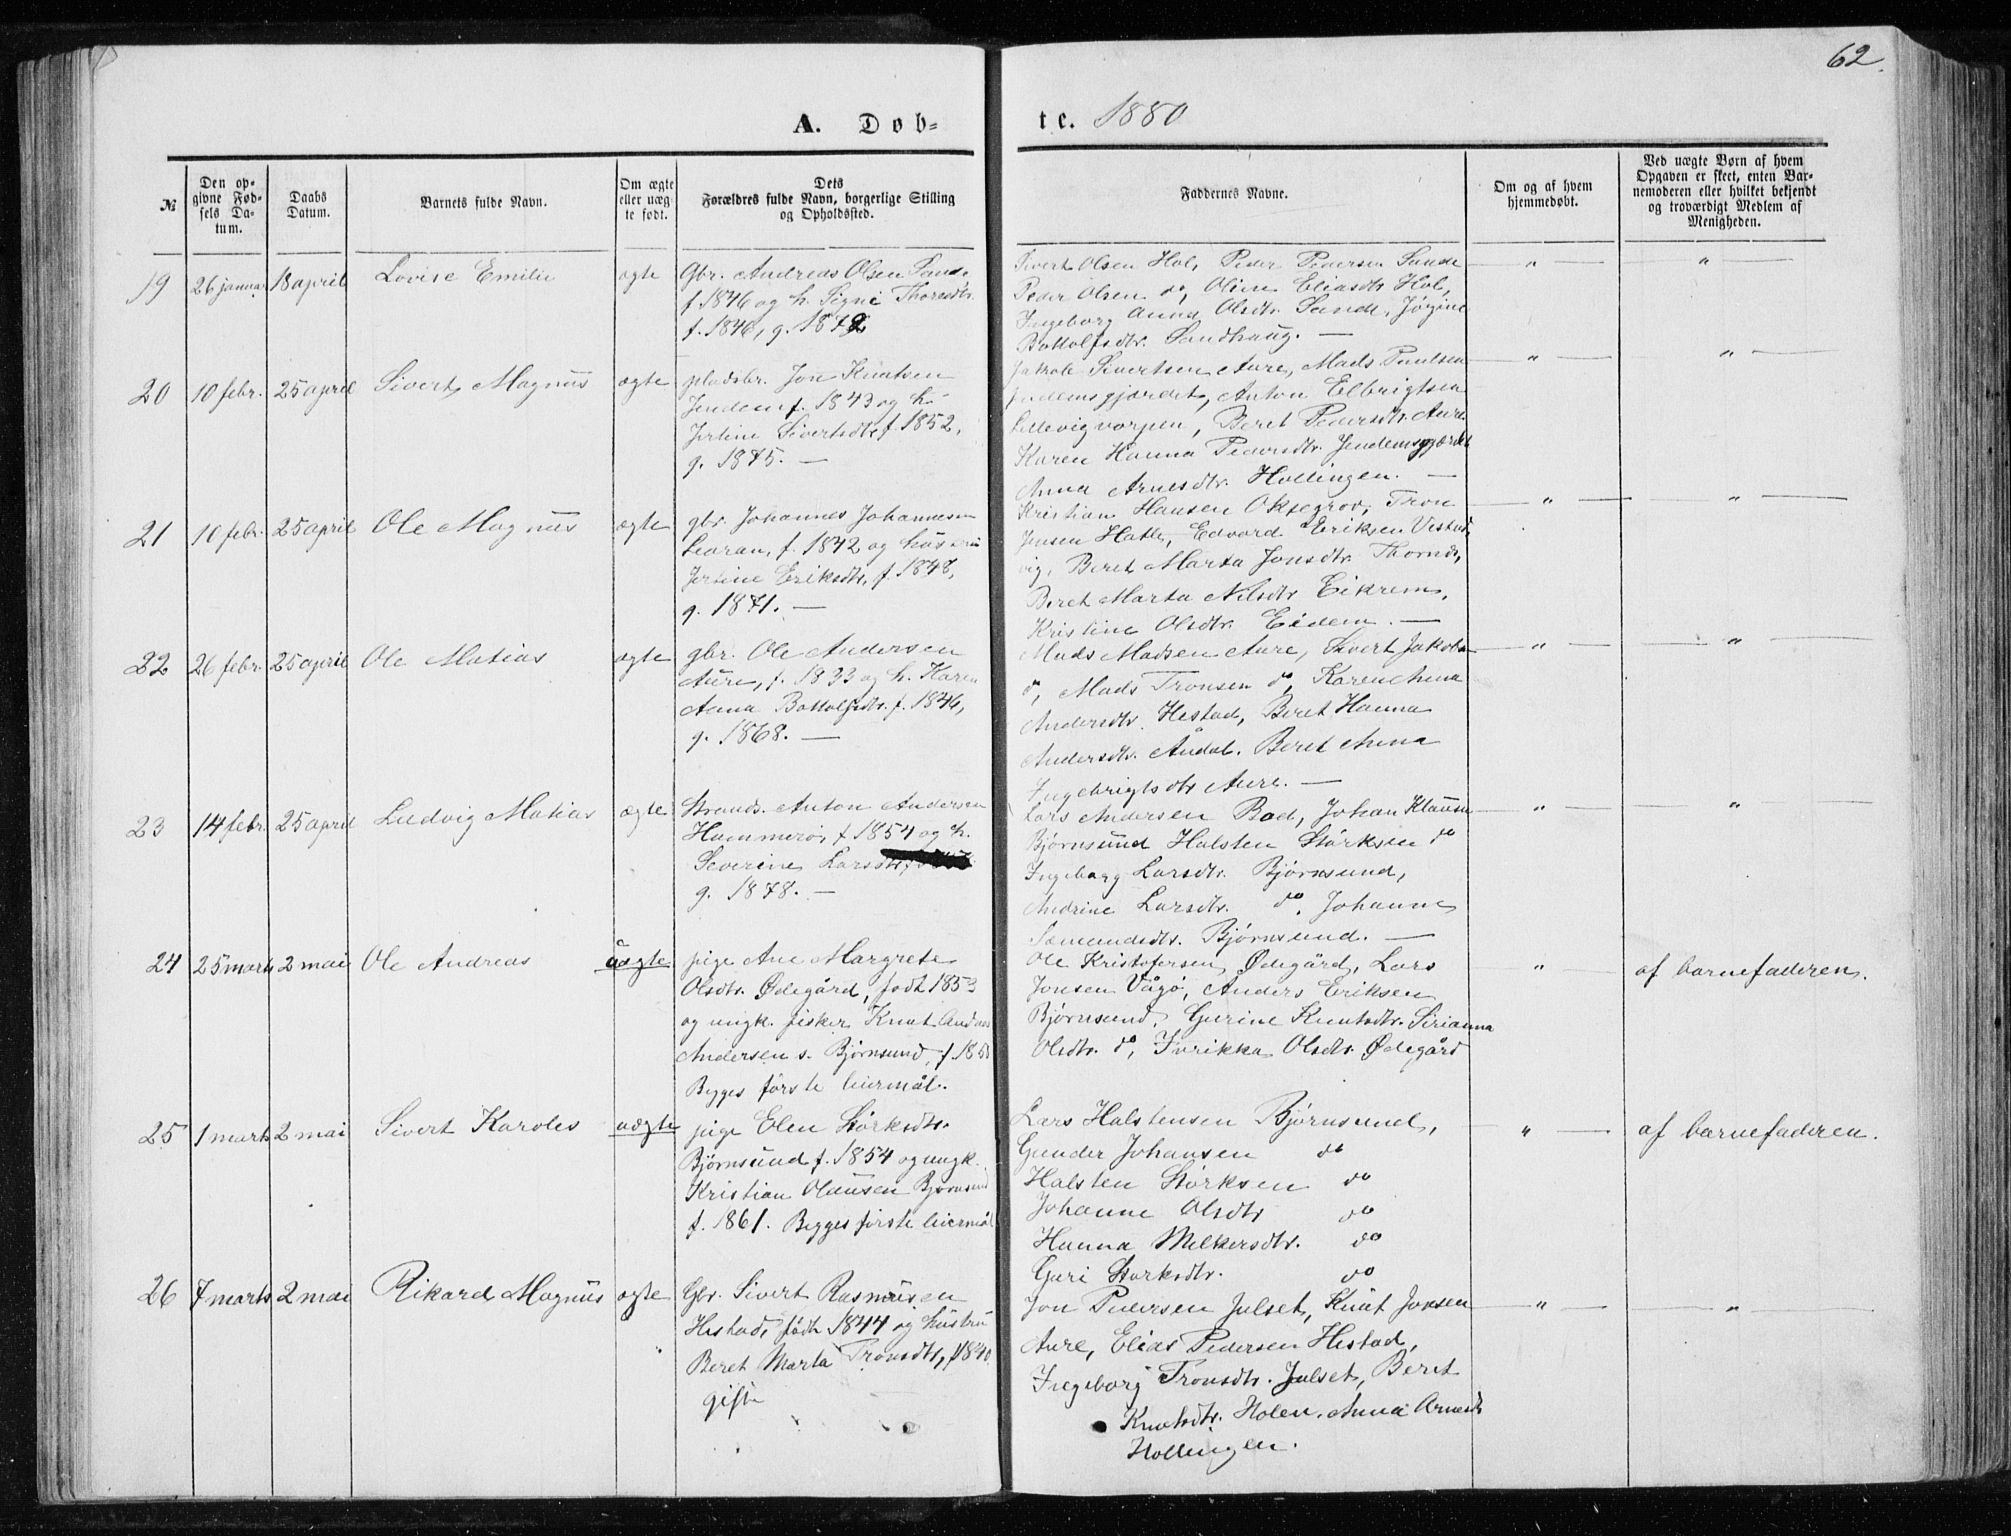 62.
A. Døb-
te. 1880
№
Den op-
givne Fød-
sels Da-
tum.
Daabs
Datum.
Barnets fulde Navn.
Om ægte
eller uæg-
te født.
Dets
Forældres fulde Navn, borgerlige Stilling
og Opholdssted.
Faddernes Navne.
Om og af hvem
hjemmedøbt.
Ved uægte Børn af hvem
Opgaven er skeet, enten Bar-
nemoderen eller hvilket bekjendt
og troværdigt Medlem af
Menigheden.
19 26 januar 18 april Lovise Emilie ægte
Gbr. Andreas Olsen Sande
f. 1846 og h. Signi Thoresdtr.
f. 1846, g. 1872
Sivert Olsen Hol, Peder Pedersen Sande
Peder Olsen do, Oline Eliasdtr Hol,
Ingeborg Anna Olsdtr. Sande, Jørgine
Bottolfsdtr. Sandhaug. —
20 10 febr. 25 april Sivert Magnus ægte
pladsbr. Jon Knutsen
Jendem f. 1843 og h.
Jertine Sivertsdtr. f. 1852,
g. 1875. —
Jakob Sivertsen Aure, Mads Paulsen
Jendemsgjærdet, Anton Elbrigtsen
Lillevigvorpen, Beret Pedersdtr. Aure
Karen Hanna Pedersdtr. Jendemsgjærdet
Anna Arnesdtr. Hollingen. —
21 10 febr. 25 april Ole Magnus ægte
gbr. Johannes Johannesen
f. 1842 og hustru
Jertine Eriksdtr, f. 1848,
g. 1871. —
Kristian Hansen Oksegrov, Tron
Jensen Hatle, Edvard Eriksen Vestad
vig, Beret Marta Jonsdtr.
Beret Marta Nilsdtr Eikrem,
Kristine Olsdtr. Eidem. —
22 26 febr. 25 april Ole Matias ægte
gbr. Ole Andersen
Aure, f. 1833 og h. Karen
Anna Bottolfsdtr. f. 1846,
g. 1868. —
Mads Madsen Aure, Sivert Jakobsen
do, Mads Tronsen do, Karen Anna
Andersdtr. Hestad, Beret Hanna
Andersdtr. Årdal. Beret Anna
Ingebrigtsdtr Aure. —
23 14 febr. 25 april Ludvig Matias ægte
Strands. Anton Andersen
Hammerø, f 1854 og h.
Severine Larsdtr,
g. 1878. —
Lars Andersen Bod, Johan Klausen
Bjørnsund Halsten Størksen do
Ingeborg Larsdtr. Bjørnsund,
Andrine Larsdtr. do. Johanne
Sæmundsdtr. Bjørnsund. —
24 25 marts 2 mai Ole Andreas uægte
pige Ane Margrete
Olsdtr. Ødegård, født 1853
og ungk. fisker Knut Andreas
Andersen s. Bjørnsund, f. 185
Begges første leiermål.
Ole Kristofersen Ødegård, Lars
Jonsen Vågø, Anders Eriksen
Bjørnsund, Gurine Knutsdtr. Sirianna
Olsdtr. do, Fririkka Olsdtr. Ødegård
af barnefaderen.
25 1 marts 2 mai Sivert Karoles uægte
pige Elen Størksdtr.
Bjørnsund f. 1854 og ungk.
Kristian Olausen Bjørnsund
f. 1861. Begges første leiermål
Lars Halstensen Bjørnsund,
Gunder Johansen do
Halsten Størksen do
Johanne Olsdtr do
Hanna Melkersdtr. do
Guri Størksdtr. do
af barnefaderen.
26 7 marts 2 mai Rikard Magnus ægte
Gbr. Sivert Rasmusen
Hestad, født 1844 og hustru
Beret Marta Tronsdtr, f 1840
gift
Jon Pedersen Julset, Knut Jonsen
Aure, Elias Pedersen Hestad,
Ingeborg Tronsdtr. Julset, Beret
Knutsdtr. Holen. Anna Arnesdtr
Hollingen.